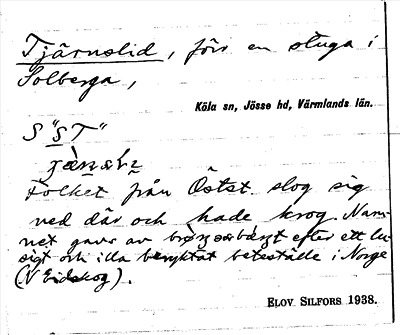 Tjärnslid, förr en stuga i
Solberga,
Köla sn, Jösse hd, Värmlands län.
S "S T"
Folket från Östst. slog sig
ned där och hade krog. Nam-
net gavs av efter ett lu-
sigt och illa beryktat beteställe i Norge
(V Eidskog).
ELOV SILFORS 1938.